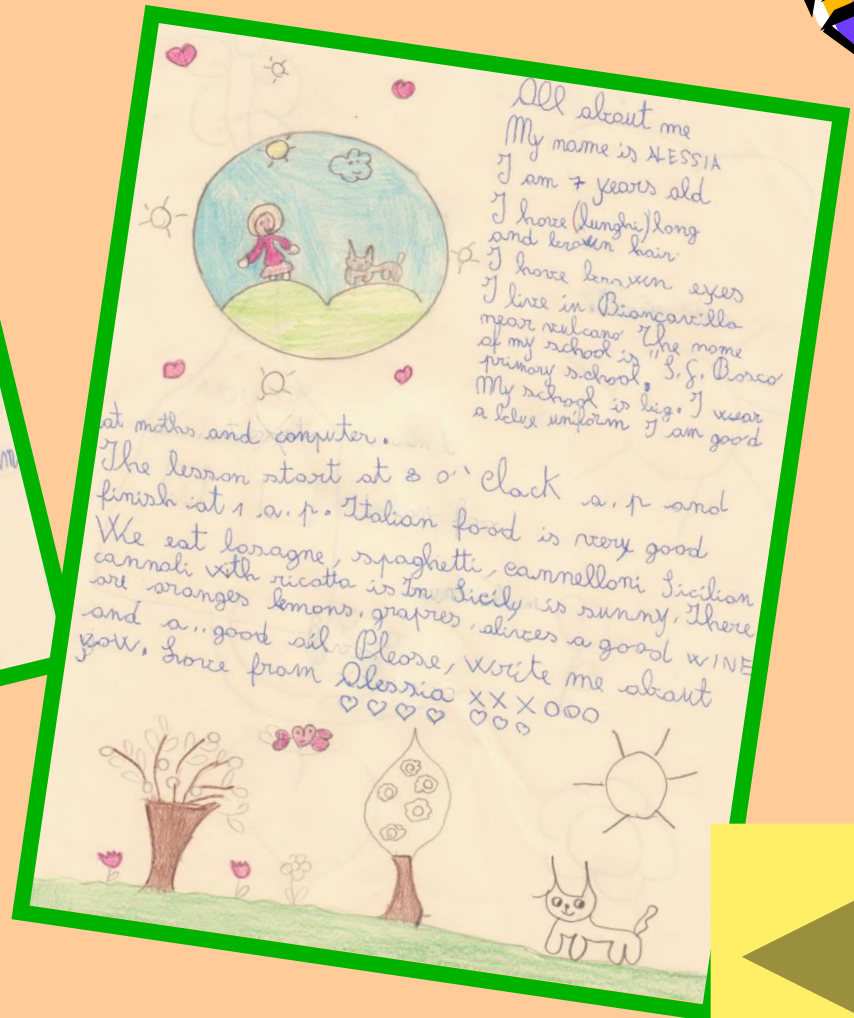 All about me
My name is ALESSIA
I am 7 years old
I have (lunghi) long
and brown hair
I have brown eyes
I live in Biancavilla
near vulcano The name
of my school is "S.G. Bosco
primary school.
My school is big. I wear
a blue uniform I am good
at maths and conputer.
The lesson start at 8 o'clack a.p and
finish at 1 a.p. Italian food is very good
We eat lasagne, spaghetti, cannelloni Sicilian
cannali with ricatta is In Sicily is sunny. There
are oranges lemons, grapres, alives a good WINE
and a.. good ail Please, write me about
yow. Love from Alessia XXX000